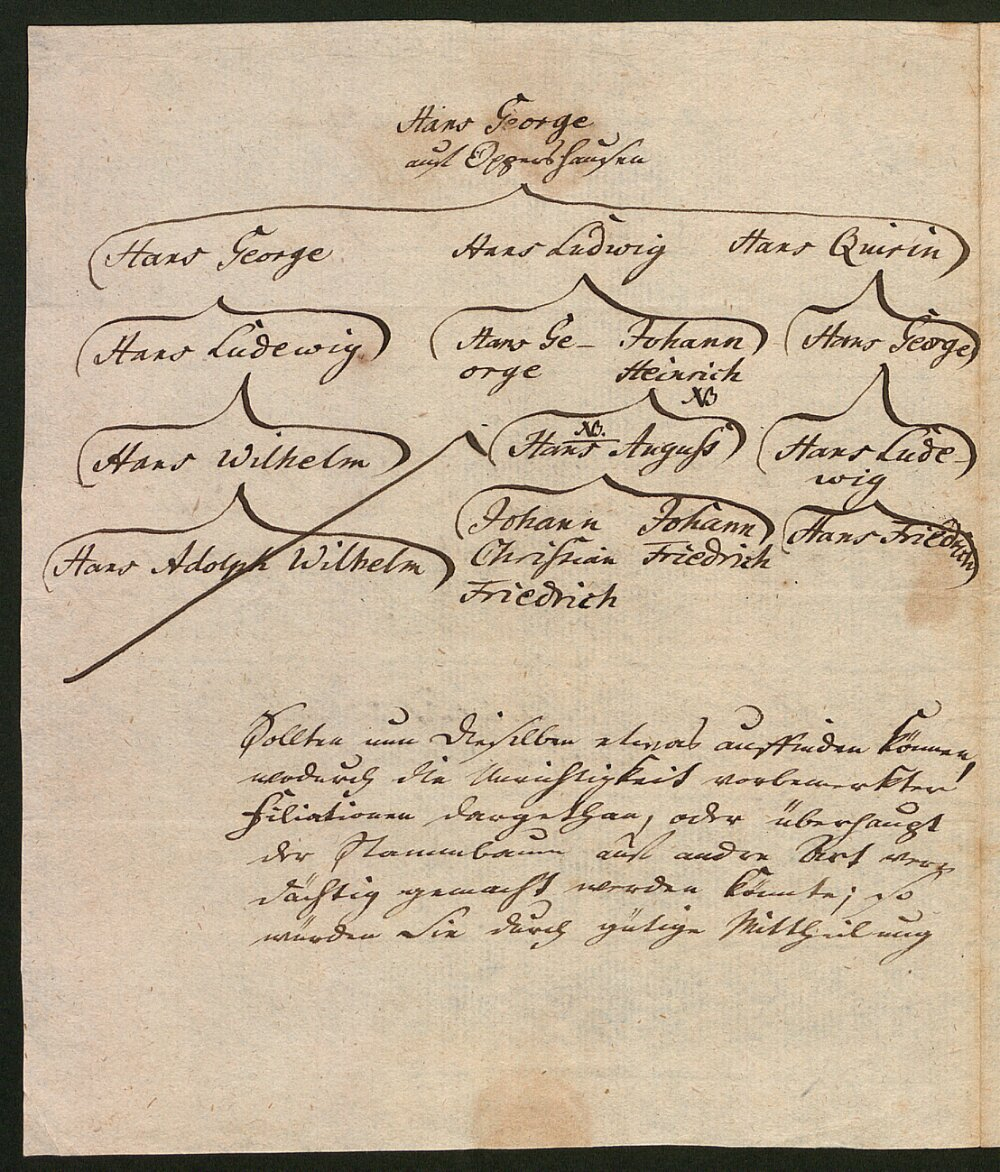 Hans George
auf Oppershausen
Hans George Hans Ludwig Hans Quirin
Hans Ludewig Hans Ge- Johann Hans George
orge Heinrich
NB
NB.
Hans Wilhelm Hans August Hans Lude-
wig
Hans Adolph Wilhelm Johann Johann Hans Friedrich
Christian Friedrich
Friedrich
Sollten nun Dieselben etwas auffinden können,
wodurch die Unrichtigkeit vorbemerkter
Filiationen dargethan, oder überhaupt
der Stammbaum auf andre Art ver-
dächtig gemacht werden könnte; so
würden Sie durch gütige Mittheilung